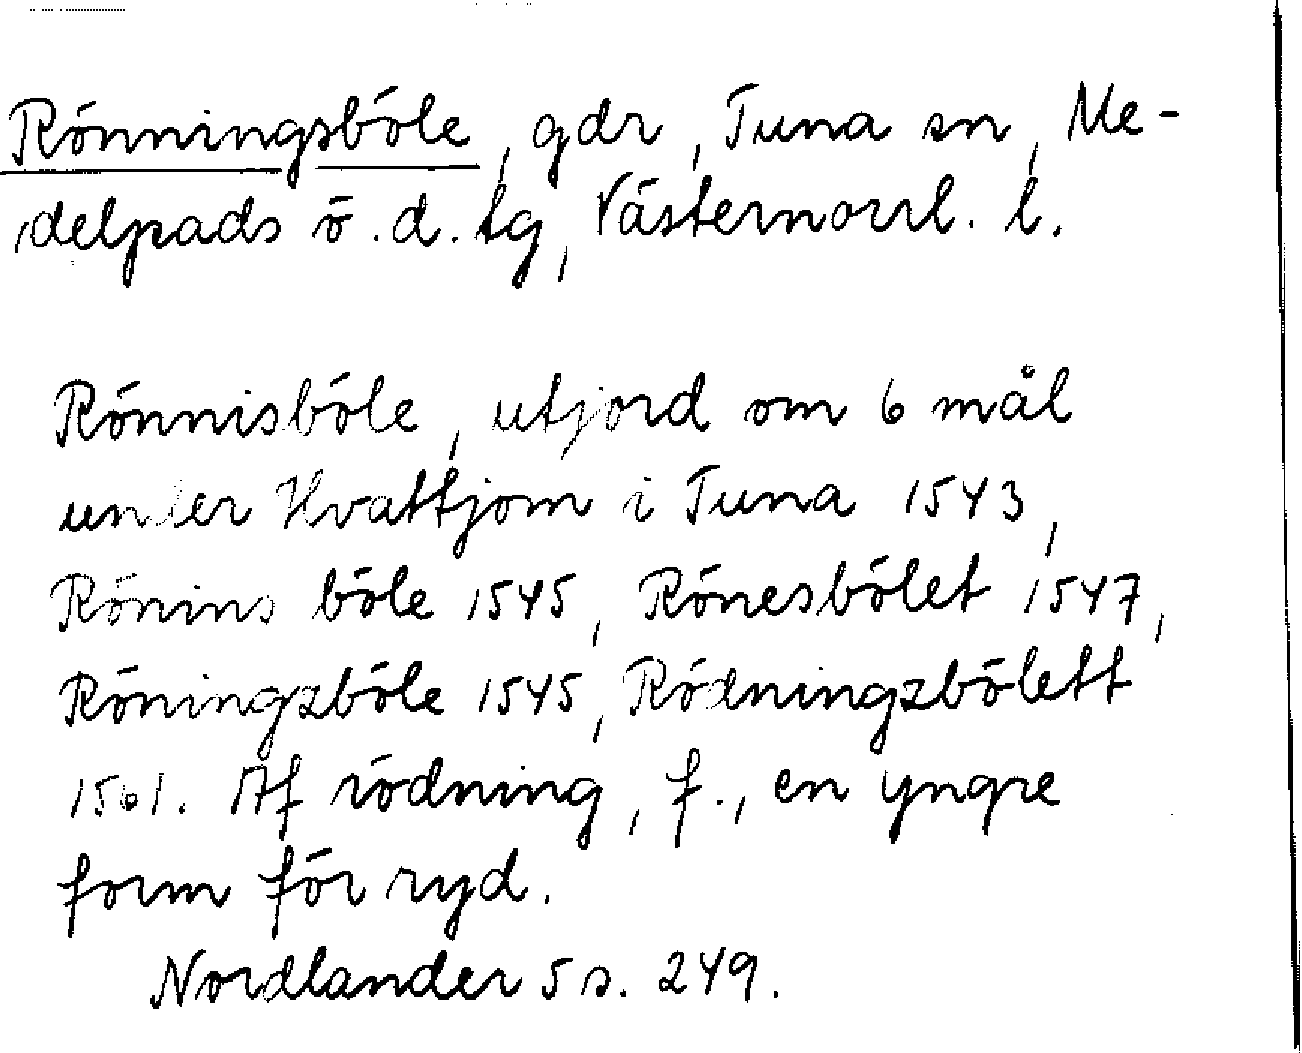 Rönningsböle, gdr, Tuna sn, Me-
delpads ö.d. tg, Västernorrl. l.
Rönnisböle, utjord om 6 mål
under Hvattjom i Tuna 1543,
Rönins böle 1545, Rönesbölet 1547,
Röningzböle 1545, Rödningzbölett
1561. Af rödning, f., en yngre
form för ryd.
Nordlander 5 s. 249.